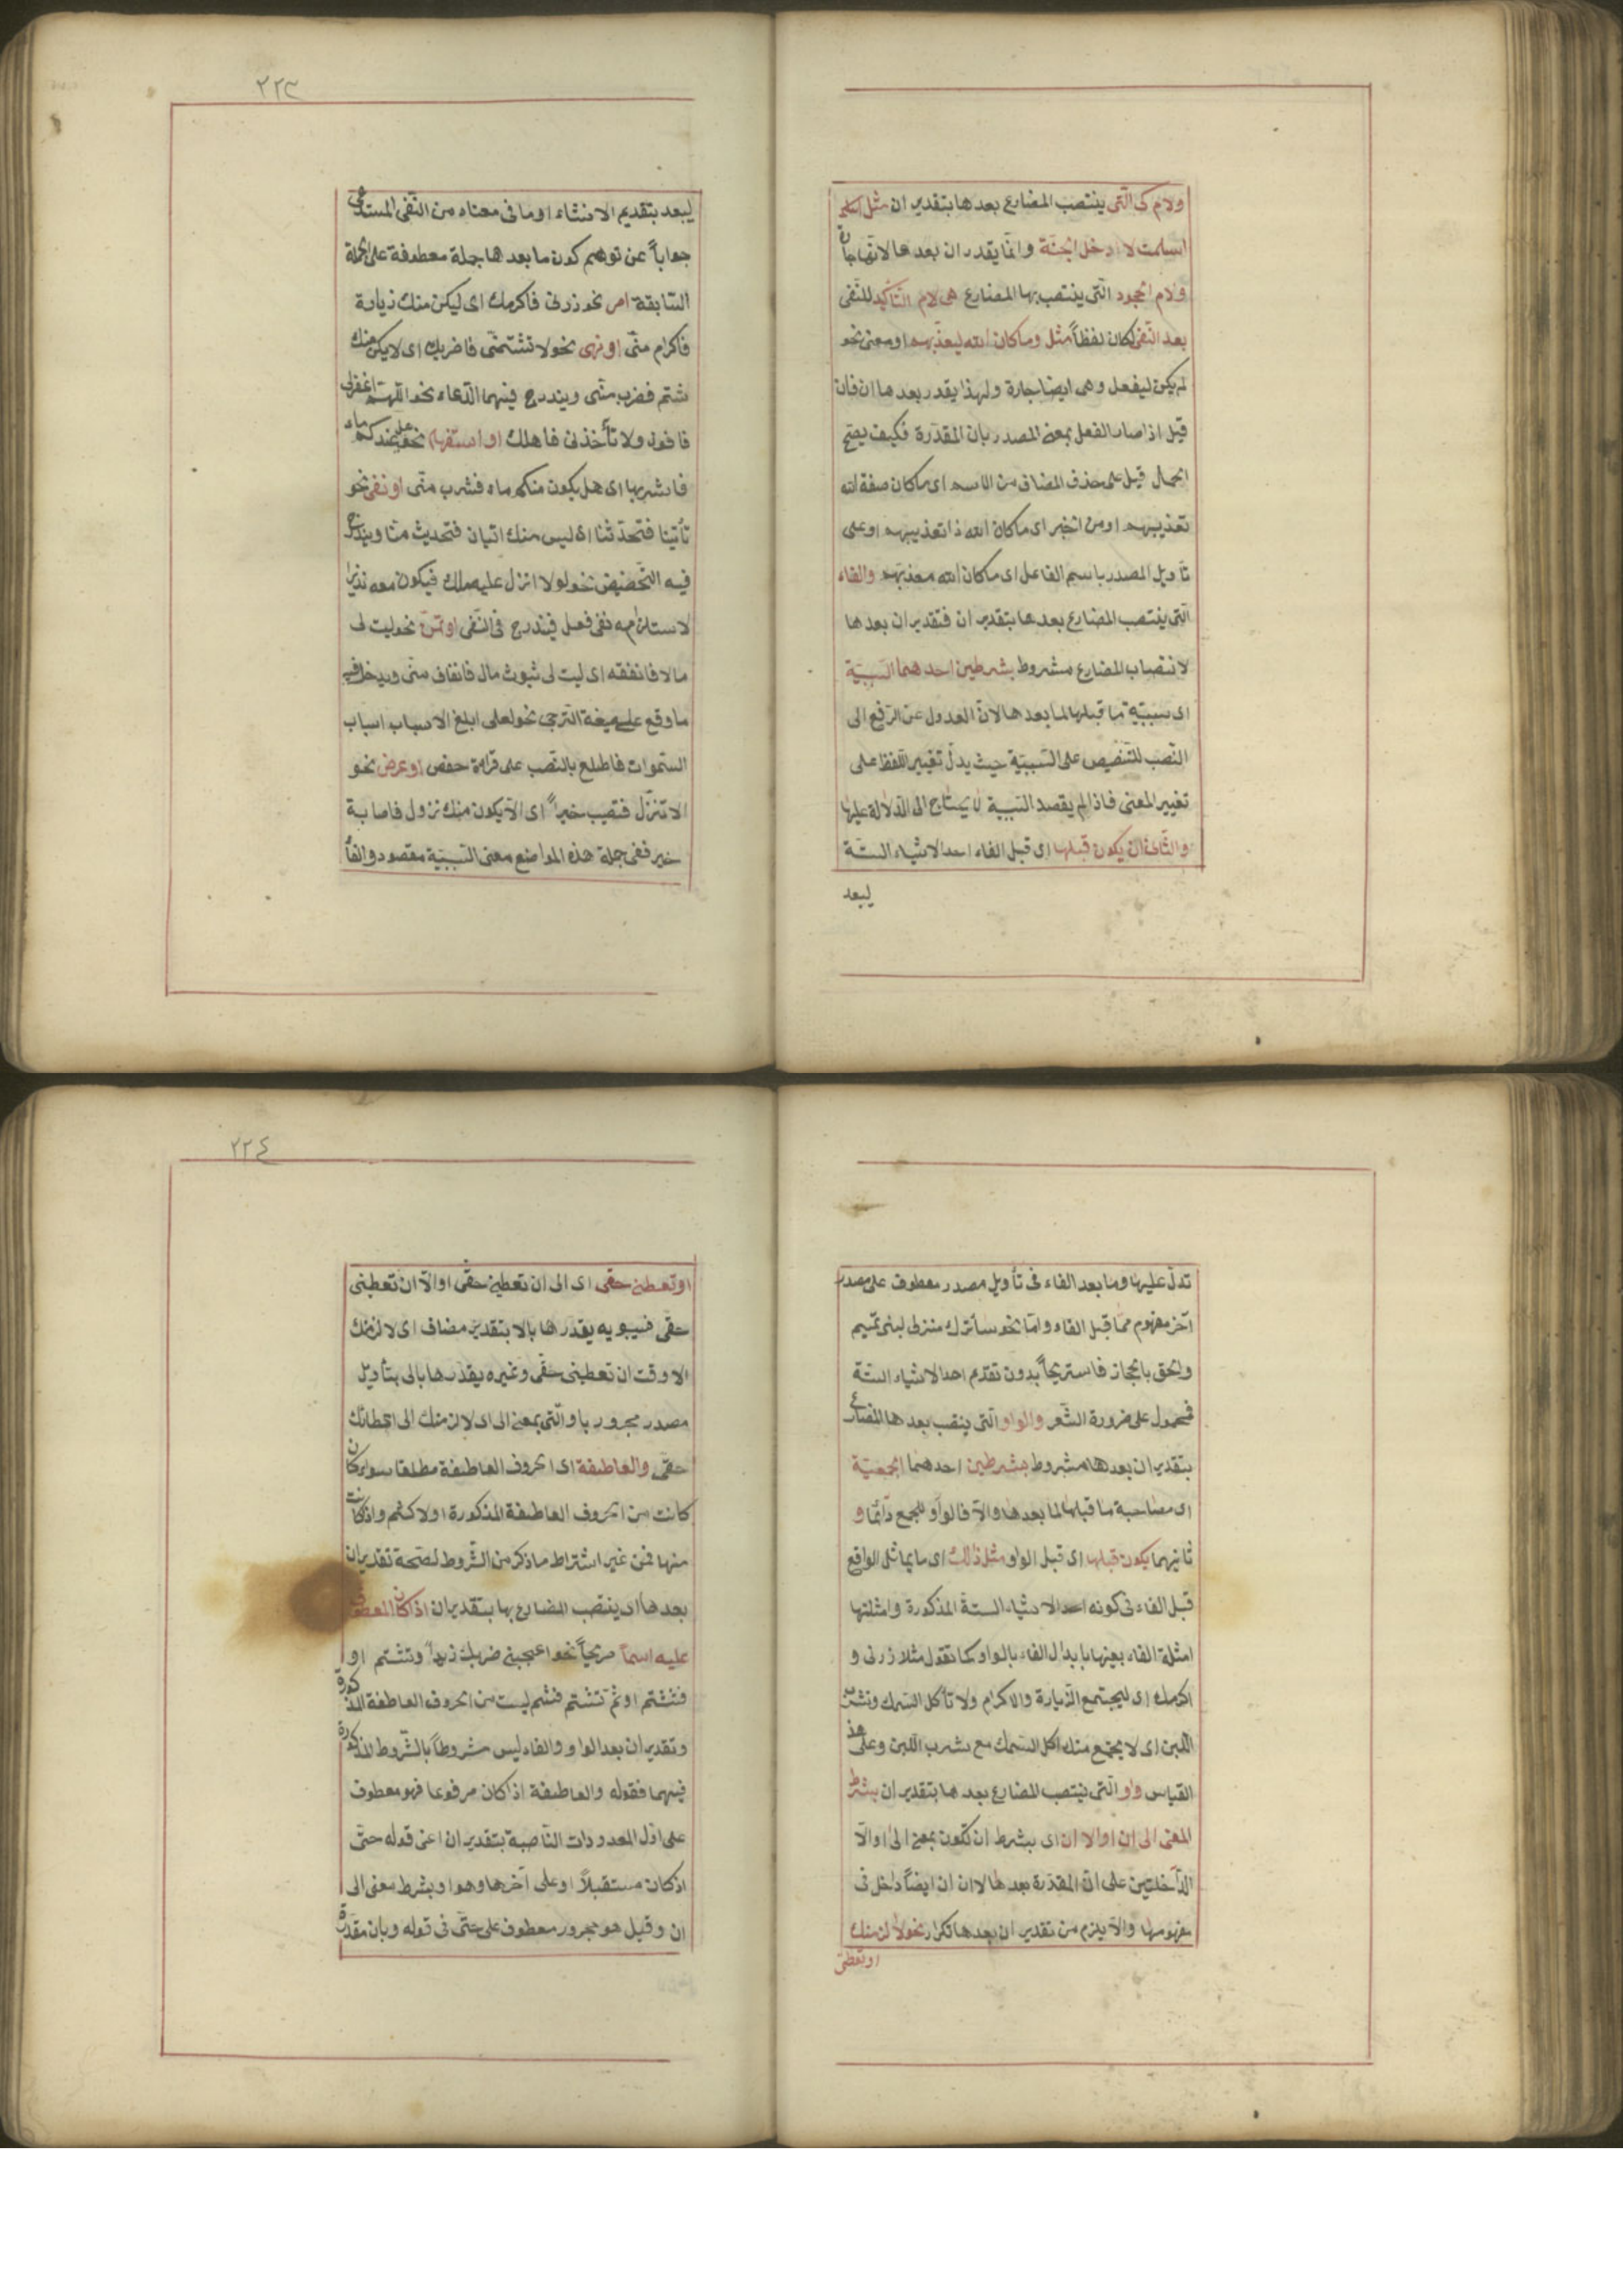 ولام كى الّتى ينتصب المضارع بعدها بتقدير ان مثل
اسلمت لادخل الجنّة وانّما يقدر ان بعدها لانّها جارة
ولام الجحود الّتى ينتصب بها المضارع هى لام التّأكيد للنّفى
بعد النّفى لكان لفظاً مثل وما كان الله ليعذّبهم او معنى نحو
لم يكن ليفعل وهى ايضا جارة ولهذا يقدر بعدها ان فان
قيل اذا صار الفعل بمعنى المصدر بان المقدّرة فكيف يصحّ
الحمل قيل على حذف المضاف من الاسم اى ما كان صفة الله
تعذيبهم او من الخبر اى ما كان الله ذا تعذيبهم او على
تأويل المصدر باسم الفاعل اى ما كان الله معذبهم والفاء
الّتى ينتصب المضارع بعدها بتقدير ان فتقدير ان بعدها
لانتصاب المضارع مشروط بشرطين احدهما السّببيّة
اى سببيّة ما قبلها لما بعدها لانّ العدول عن الرّفع الى
النّصب للتّنصيص على السّببيّة حيث يدلّ تغيير اللّفظ على
تغيير المعنى فاذا لم يقصد السّببية لا يحتاج الى الدّلالة عليها
والثّانى ان يكون قبلها اى قبل الفاء احد الاشياء الستّة
ليبعد
٢٢٣
ليبعد بتقديم الانشاء او ما فى معناه من النّفى المستدعى
جواباً عن توهم كون ما بعدها جملة معطوفة على الجملة
السّابقة امر نحو زرنى فاكرمك اى ليكن منك زيارة
فاكرام منّى او نهى نحو لا تشتمنى فاضربك اى لا يكن منك
شتم فضرب منّى ويندرج فيهما الدّعاء نحو اللّهم اغفرلى
فافوز ولا تأخذنى فاهلك او استفهام نحو هل عندكم ماء
فاشربها اى هل يكون منكم ماء فشرب منّى او نفى نحو
تأتينا فتحدّثنا اى ليس منك اتيان فتحديث منّا ويندرج
فيه التّحضيض نحو لولا انزل عليه ملك فيكون معه نذيرا
لاستلزامه نفى فعل فيندرج فى النّفى او تمنّ نحو ليت لى
مالا فانفقه اى ليت لى ثبوت مال فانفاق منّى ويدخل فيه
ما وقع على صيغة التّرجى نحو لعلى ابلغ الاسباب اسباب
السّموات فاطلع بالنّصب على قراءة حفص او عرض نحو
الا تنزّل فتصيب خيراً اى الا يكون منك نزول فاصابة
خير ففى جملة هذه المواضع معنى السّببيّة مقصود والفأ
تدلّ عليها وما بعد الفاء فى تأويل مصدر معطوف على مصدر
آخر مفهوم ممّا قبل الفاء وامّا نحو سأترك منزلى لبنى تميم
والحق بالحجاز فاستريحاً بدون تقدّم احد الاشياء الستّة
فمحمول على ضرورة الشّعر والواو الّتى ينصب بعدها المضارع
بتقدير ان بعدها مشروط بشرطين احدهما الجمعيّة
اى مصاحبة ما قبلها لما بعدها والّا فالواو للجمع دائما و
ثانيهما يكون قبلها اى قبل الواو مثل ذلك اى ما يماثل الواقع
قبل الفاء فى كونه احد الاشياء الستة المذكورة وامثلتها
امثلة الفاء بعينها بابدال الفاء بالواو كما تقول مثلا زرنى و
اكرمك اى ليجتمع الزّيارة والاكرام ولا تأكل السّمك وتشرب
اللّبن اى لا يجتمع منك اكل السّمك مع شرب اللّبن وعلى هذ
القياس واو الّتى ينتصب المضارع بعدها بتقدير ان بشرط
المعنى الى ان او الا ان اى بشرط ان تكون بمعنى الى او الّا
الدّاخلتين على ان المقدّرة بعدها لا ان ان ايضاً داخل فى
مفهومها والّا يلزم من تقدير ان بعدها تكرار نحو لالزمنك
او تعطى
٢٢٤
او تعطنى حقّى اى الى ان تعطينى حقّى او الّا ان تعطينى
حقّى فسيبويه يقدرها بالا بتقدير مضاف اى لالزمنك
الا وقت ان تعطينى حقّى وغيره يقدّرها بالى بتأويل
مصدر مجرور باو الّتى بمعنى الى اى لالزمنك الى اعطائك
حقّى والعاطفة اى الحروف العاطفة مطلقا سواء كان
كانت من الحروف العاطفة المذكورة اولا كثم واذا كانت
منها فمن غير اشتراط ما ذكر من الشّروط لصحة تقدير ان
بعدها اى ينتصب المضارع بها بتقدير ان اذا كان المعطوف
عليه اسماً صريحاً نحو اعجبنى ضربك زيداً وتشتم او
فتشتم او ثمّ تشتم فثم ليست من الحروف العاطفة المذكورة
وتقدير ان بعد الواو والفاء ليس مشروطاً بالشّروط المذكورة
فيهما فقوله والعاطفة اذا كان مرفوعا فهو معطوف
على اوّل المعدودات النّاصبة بتقدير ان اعنى قوله حتّى
اذ كان مستقبلاً او على آخرها وهو او بشرط معنى الى
ان وقيل هو مجرور معطوف على حتّى فى قوله وبان مقدّرة